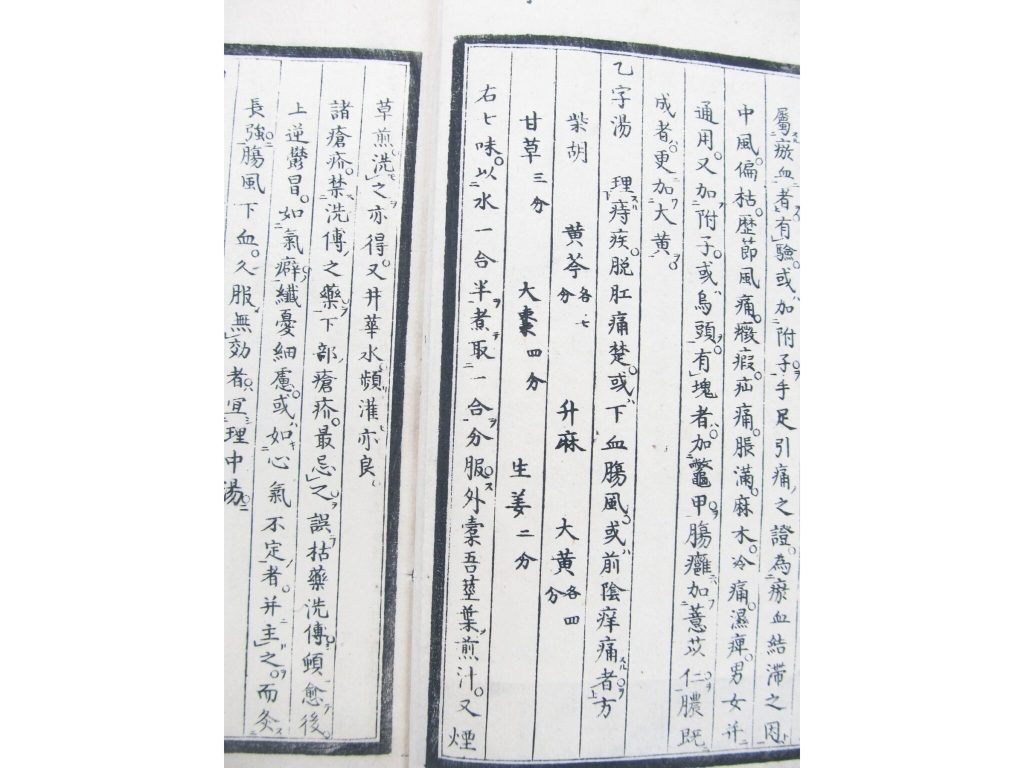 屬瘀血者有驗。或加附子手足引痛之證。為瘀血結滯之因
中風。偏枯。歷節風痛。癥瘕。疝痛。脹滿。麻木。冷痛。濕痺。男女
通用。又加附子。或烏頭。有塊者。加鼈甲。腸癰加薏苡仁膿既
成者。更加大黃。
乙字湯 理痔疾。脱肛痛楚。或下血腸風。或前陰痒痛者方
柴胡 黄芩各七分 升麻 大黃各四分
甘草三分 大棗四分 生姜二分
右七味。以水一合半煮取一合分服。外橐吾莖葉煎汁。又煙
草煎洗之亦得。又井華水頻灌亦良。
諸瘡疥。禁洗傅之藥。下部瘡疥。最忌之。誤枯藥洗傅頓愈後。
上逆鬱冒。如氣癖。纖憂細慮。或如心氣不定者。并主之。而灸
長強。腸風下血。久服無効者。宜理中湯。